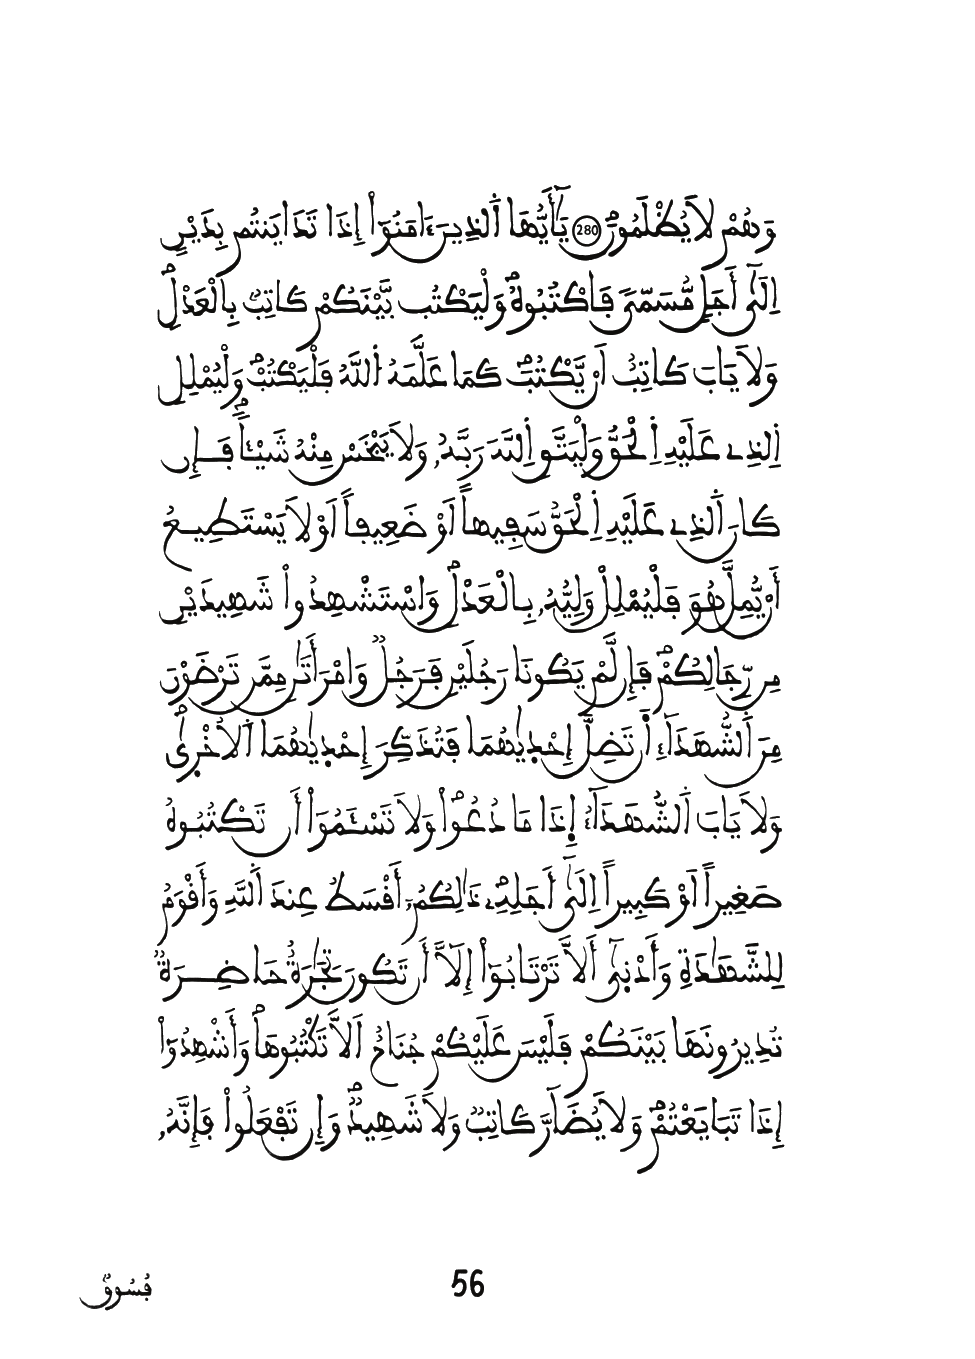 وَهُمْ لَا يُظْلَمُونَ 280 يَٰٓأَيُّهَا اَ۬لذِينَ ءَامَنُوٓاْ إِذَا تَدَايَنتُم بِدَيْنٍ
اِلَىٰٓ أَجَلٍ مُّسَمّىٗ فَاكْتُبُوهُۖ وَلْيَكْتُب بَّيْنَكُمْ كَاتِبُۢ بِالْعَدْلِۖ
وَلَا يَابَ كَاتِبٌ اَنْ يَّكْتُبَۖ كَمَا عَلَّمَهُ اُ۬للَّهُ فَلْيَكْتُبْۖ وَلْيُمْلِلِ
اِ۬لذِے عَلَيْهِ اِ۬لْحَقُّ وَلْيَتَّقِ اِ۬للَّهَ رَبَّهُۥ وَلَا يَبْخَسْ مِنْهُ شَيْـٔاًۖ فَإِن
كَانَ اَ۬لذِے عَلَيْهِ اِ۬لْحَقُّ سَفِيهاً اَوْ ضَعِيفاً اَوْ لَا يَسْتَطِيعُ
أَنْ يُّمِلَّ هُوَ فَلْيُمْلِلْ وَلِيُّهُۥ بِالْعَدْلِۖ وَاسْتَشْهِدُواْ شَهِيدَيْنِ
مِن رِّجَالِكُمْۖ فَإِن لَّمْ يَكُونَا رَجُلَيْنِ فَرَجُلٞ وَامْرَأَتَٰنِ مِمَّن تَرْضَوْنَ
مِنَ اَ۬لشُّهَدَآءِ اَ۬ن تَضِلَّ إِحْدَىٰهُمَا فَتُذَكِّرَ إِحْدَىٰهُمَا اَ۬لُاخْرَىٰۖ
وَلَا يَابَ اَ۬لشُّهَدَآءُ اِ۬ذَا مَا دُعُواْۖ وَلَا تَسْـَٔمُوٓاْ أَن تَكْتُبُوهُ
صَغِيراً اَوْ كَبِيراً اِلَىٰٓ أَجَلِهِۦۖ ذَٰلِكُمُۥٓ أَقْسَطُ عِندَ اَ۬للَّهِ وَأَقْوَمُ
لِلشَّهَٰدَةِ وَأَدْنَىٰٓ أَلَّا تَرْتَابُوٓاْ إِلَّآ أَن تَكُونَ تِجَٰرَةٌ حَاضِرَةٞ
تُدِيرُونَهَا بَيْنَكُمْ فَلَيْسَ عَلَيْكُمْ جُنَاحٌ اَلَّا تَكْتُبُوهَاۖ وَأَشْهِدُوٓاْ
إِذَا تَبَايَعْتُمْۖ وَلَا يُضَآرَّ كَاتِبٞ وَلَا شَهِيدٞۖ وَإِن تَفْعَلُواْ فَإِنَّهُۥ
56
فُسُوقُۢ